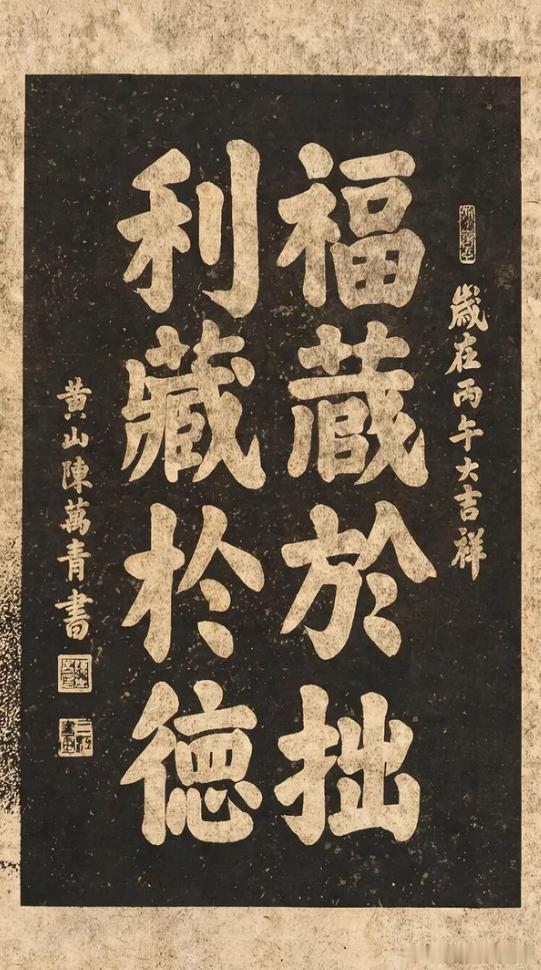 歲在丙午大吉祥
福蔵於拙
利藏於德
黄山陳萬青書